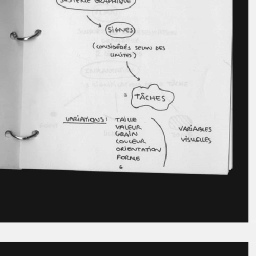 SYSTÈME GRAPHIQUE
SIGNES
(CONSIDÉRÉS SELON DES
LIMITES)
= TÂCHES
VARIATIONS: TAILLE
VALEUR
GRAIN
COULEUR
ORIENTATION
FORME
VARIABLES
VISUELLES